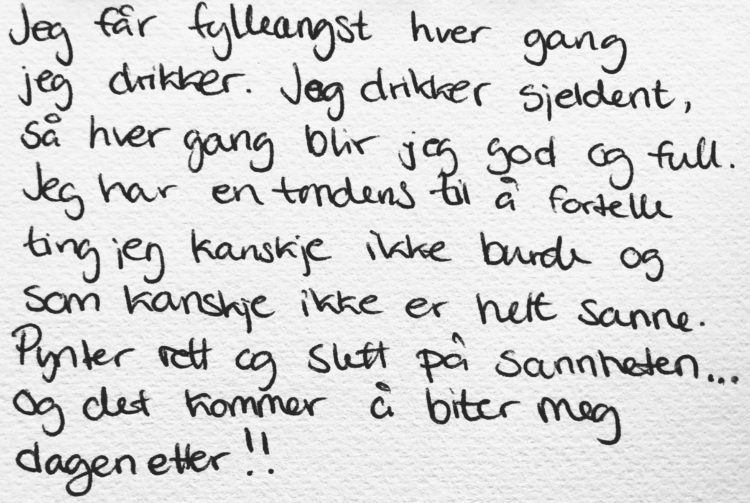 Jeg får fylleangst hver gang
jeg drikker. Jeg drikker sjeldent,
så hver gang blir jeg god og full.
Jeg har en tendens til å fortelle
ting jeg kanskje ikke burde og
som kanskje ikke er helt sanne.
Pynter rett og slett på sannheten...
og det kommer å biter meg
dagen etter!!